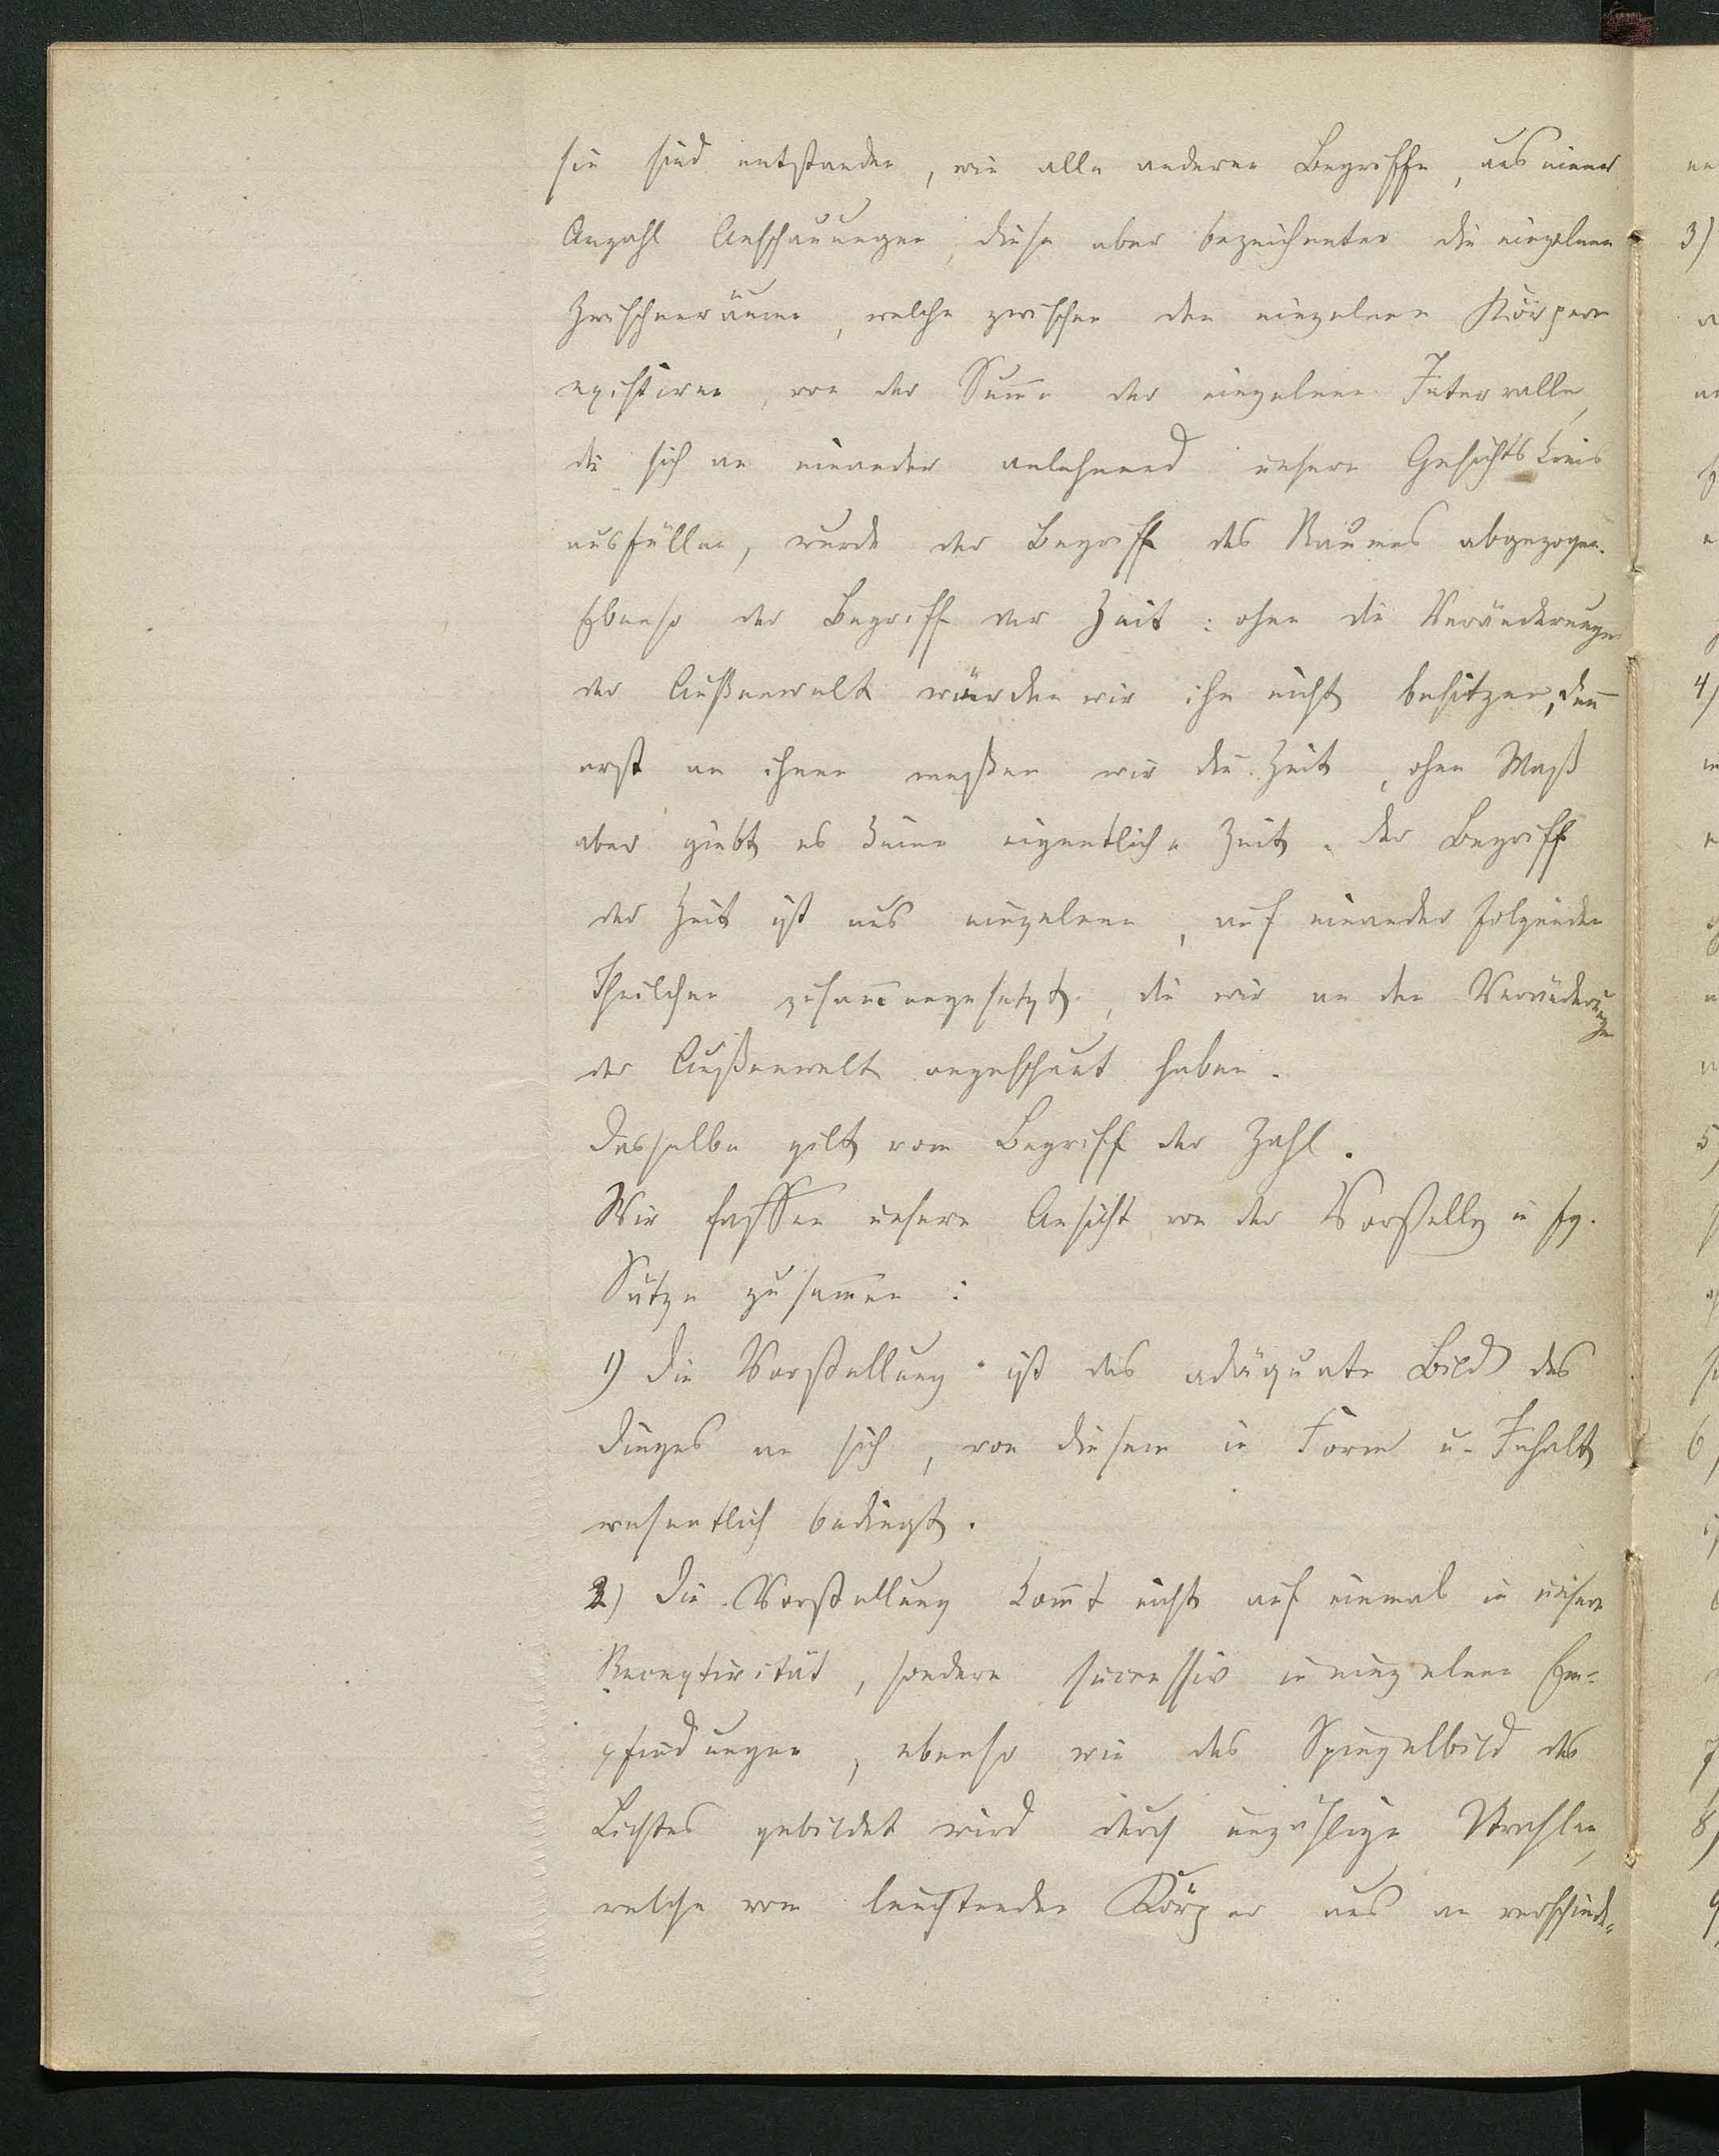 sie sind entstanden, wie alle anderen Begriffe, aus einer
Anzahl Anschauungen, diese aber bezeichneten die einzelnen
Zwischenräume, welche zwischen den einzelnen Körpern
existiren, von der Sum̄e der einzelnen Intervalle,
die sich an einander anlehnend unsern Gesichtskreis
ausfüllen, wurde der Begriff des Raumes abgezogen.
Ebenso der Begriff der Zeit: ohne die Veränderungen
der Außenwelt würden wir ihn nicht besitzen, den̄
erst an ihnen meßen wir die Zeit, ohne Maß
aber giebt es keine eigentliche Zeit. Der Begriff
der Zeit ist aus einzelnen, auf einander folgenden
Theilchen zusam̄engesetzt, die wir an den Veränderungen
der Außenwelt angeschaut haben.
Dasselbe gilt vom Begriff der Zahl.
Wir fassen unsere Ansicht von der Vorstellg in fg.
Sätze zusam̄en:
1) Die Vorstellung ist das adäquate Bild des
Dinges an sich, von diesem in Form u. Inhalt
wesentlich bedingt.
2) Die Vorstellung kom̄t nicht auf einmal in unsere
Receptivität, sondern successiv in einzelnen Em-
pfindungen, ebenso wie das Spiegelbild des
Lichtes gebildet wird durch unzählige Strahlen,
welche vom leuchtenden Körper aus an verschiede-
3)
4)
5)
6)
7
8)
9